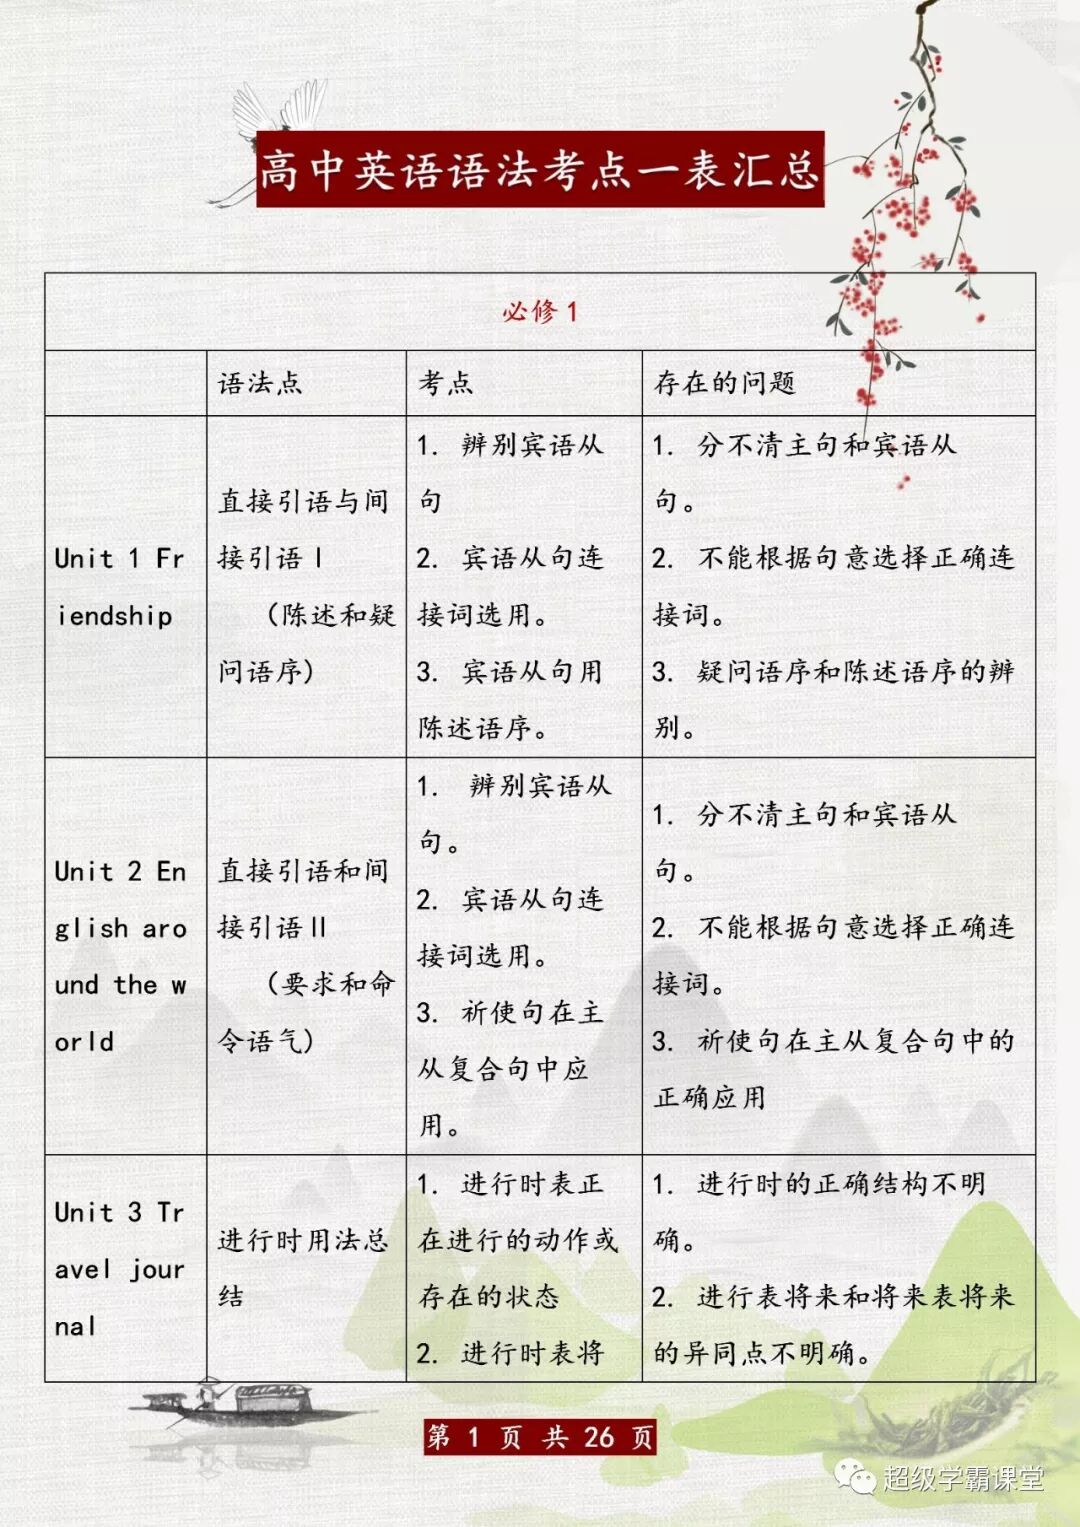 高中英语语法考点一表汇总
必修1
语法点
考点
存在的问题
Unit 1 Fr
iendship
直接引语与间
接引语Ⅰ
（陈述和疑
问语序）
1. 辨别宾语从
句
2. 宾语从句连
接词选用。
3. 宾语从句用
陈述语序。
1. 分不清主句和宾语从
句。
2. 不能根据句意选择正确连
接词。
3. 疑问语序和陈述语序的辨
别。
Unit 2 En
glish aro
und the w
orld
直接引语和间
接引语Ⅱ
（要求和命
令语气）
1. 辨别宾语从
句。
2. 宾语从句连
接词选用。
3. 祈使句在主
从复合句中应
用。
1. 分不清主句和宾语从
句。
2. 不能根据句意选择正确连
接词。
3. 祈使句在主从复合句中的
正确应用
Unit 3 Tr
avel jour
nal
进行时用法总
结
1. 进行时表正
在进行的动作或
存在的状态
2. 进行时表将
1. 进行时的正确结构不明
确。
2. 进行表将来和将来表将来
的异同点不明确。
第 1 页 共 26 页
超级学霸课堂